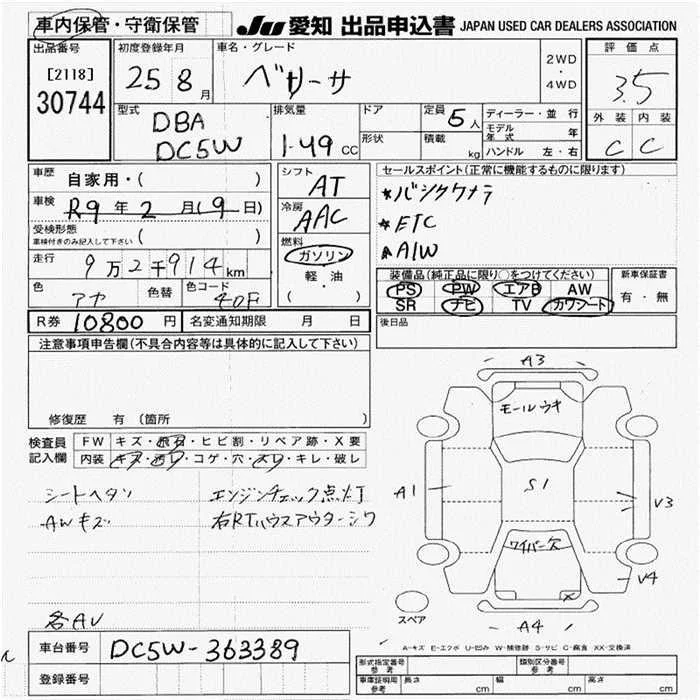 車内保管・守衛保管
JU 愛知 出品申込書 JAPAN USED CAR DEALERS ASSOCIATION
出品番号
[2118]
30744
初度登録年月
25 8 月
車名・グレード
ベリーサ
2WD
・
4WD
評価点
3.5
外装 内装
C C
型式
DBA
DC5W
排気量
1.49 CC
ドア
形状
定員 5 人
積載 kg
ディーラー・並行
モデル年式 年
ハンドル 左・右
車歴 自家用・( )
車検 R9 年 2 月 19 日)
受検形態
車検付きのみ記入して下さい ( )
走行 9 万 2 千 914 km
色
アカ
色替
色コード
40F
シフト
AT
冷房
AAC
燃料
ガソリン
・
軽・油
( )
セールスポイント(正常に機能するものに限ります)
ETC
A/W
装備品(純正品に限り○をつけてください)
PS PW エアB AW
SR ナビ TV カワシート
新車保証書
有・無
後日品
R券 10800 円
名変通知期限 月 日
注意事項申告欄(不具合内容等は具体的に記入して下さい)
修復歴 有 (箇所 )
検査員
記入欄
FW キズ・飛石・ヒビ割・リペア跡・X要
内装 キズ・汚レ・コゲ・穴・スレ・キレ・破レ
シートヘタリ エンジンチェック点灯
AWキズ 右RTハウスアウターシワ
各AU
車台番号 DC5W-363389
登録番号
A3
モールウキ
A1
S1
V3
ワイパー欠
V4
スペア
A4
A-キズ E-エクボ U-凹み W-補修跡 S-サビ C-腐食 XX-交換済
型式指定番号
参考
類別区分番号
参考
車庫証明用
参考
長さ cm
幅 cm
高さ cm